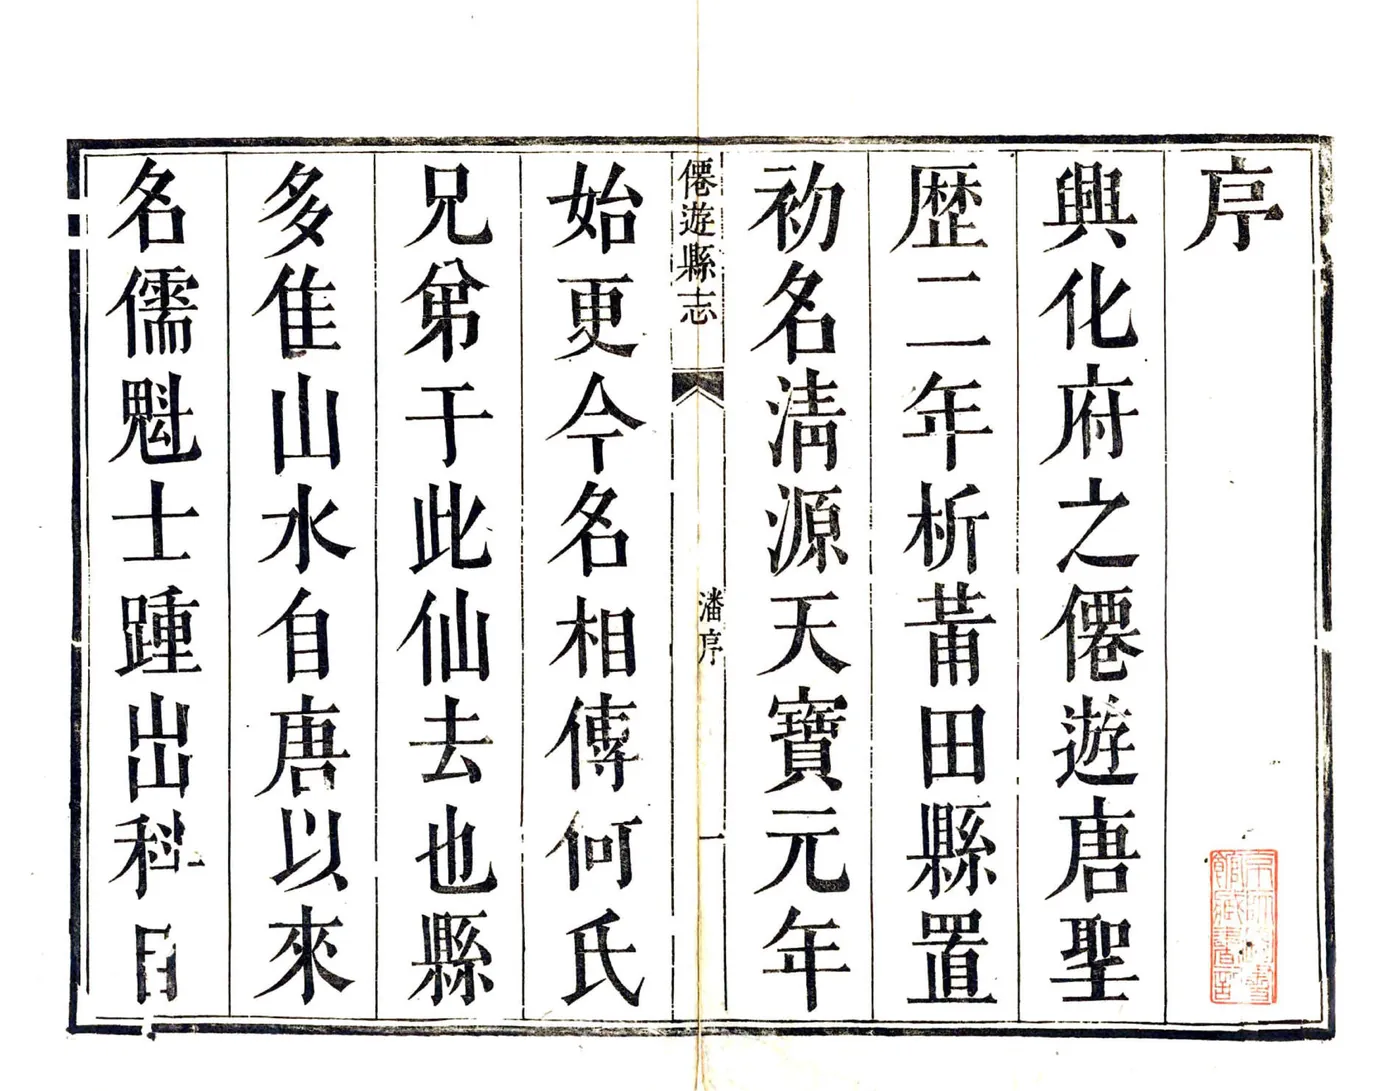 序
興化府之僊遊唐聖
歴二年析莆田縣置
初名清源天寶元年
僊遊縣志
潘序
一
始更今名相傳何氏
兄弟于此仙去也縣
多佳山水自唐以來
名儒魁士踵岀科目